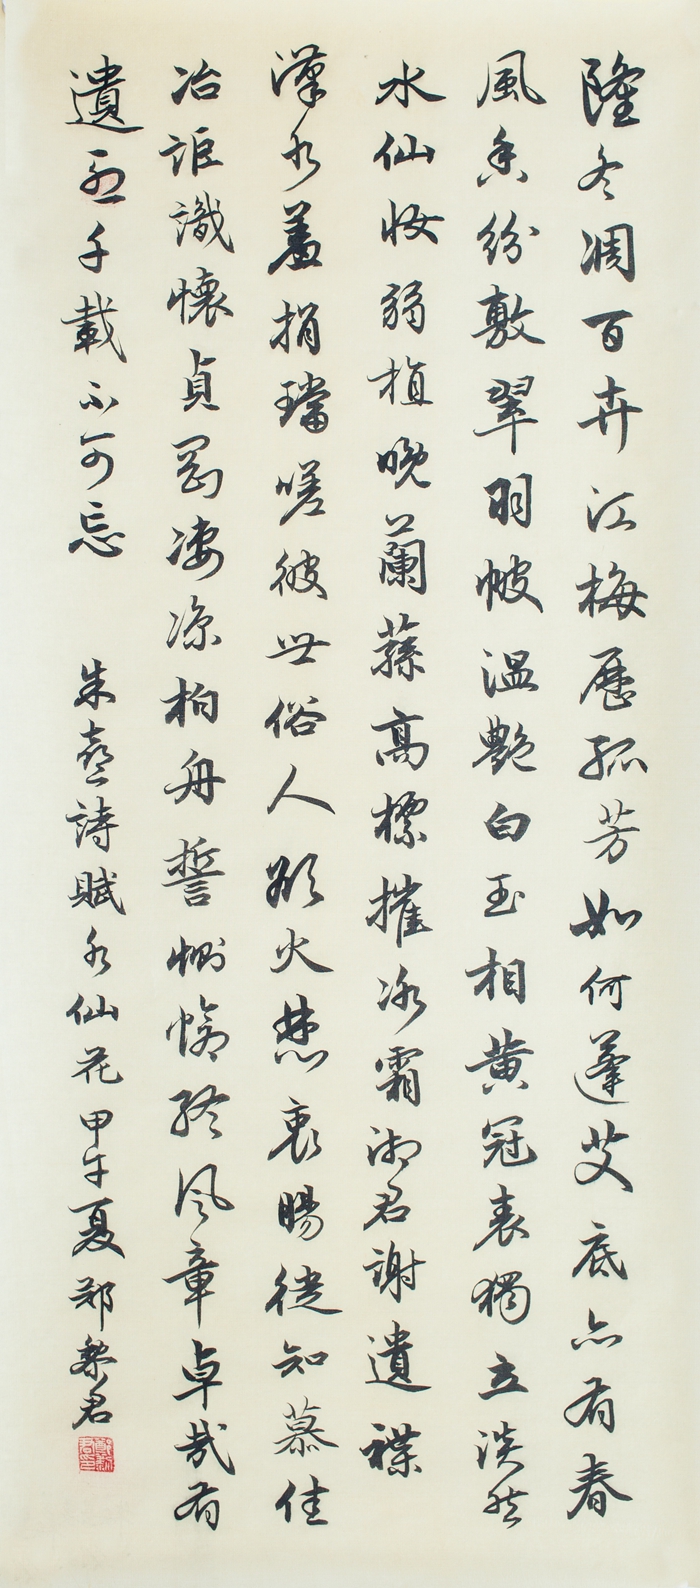 隆冬凋百卉江梅歷孤芳如何蓬艾底亦有春
風香紛敷翠羽帔温艷白玉相黄冠表獨立淡然
水仙妝弱植晚蘭蓀高標摧冰霜湘君謝遺褋
漢水羞捐璫嗟彼世俗人欲火焚衷腸徒知慕佳
冶詎識懷貞剛凄凉柏舟誓惻愴終風章卓哉有
遺烈千載不可忘 朱熹詩賦水仙花甲午夏鄭黎君